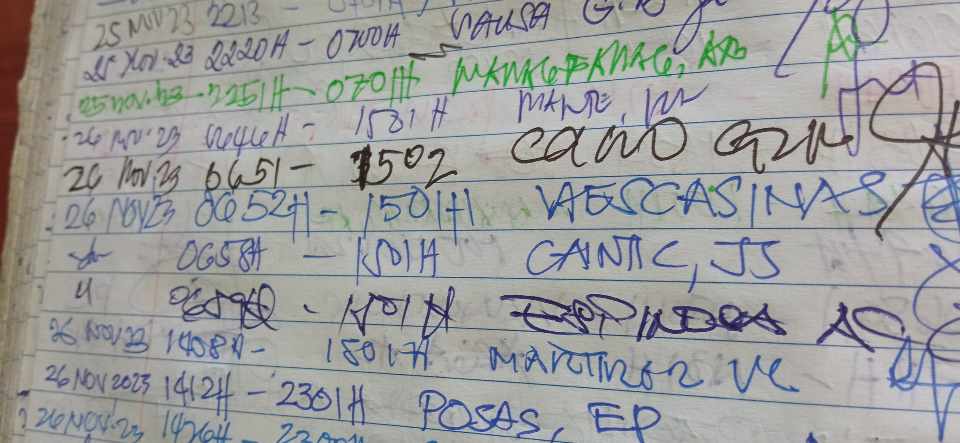 25 NOV 23 2213 -
25 NOV-23 2220H - 0700H SAUSA G.
25 NOV-23 - 2251H - 0701H MANAGPANAG, AR
26 NOV 23 0646H - 1501H MANTE,
26 NOV 23 0651 - 1502 CANO
26 NOV 23 0652H - 1501H VAESCASINAS
0658H - 1501H CANTIC, JS
" 0659H - 1501H ESPINDOLA AC
26 NOV 23 1408H - 1501H MARTINEZ VC
26 NOV 2023 1412H - 2301H POSAS, EP
26 NOV-23 1426H -